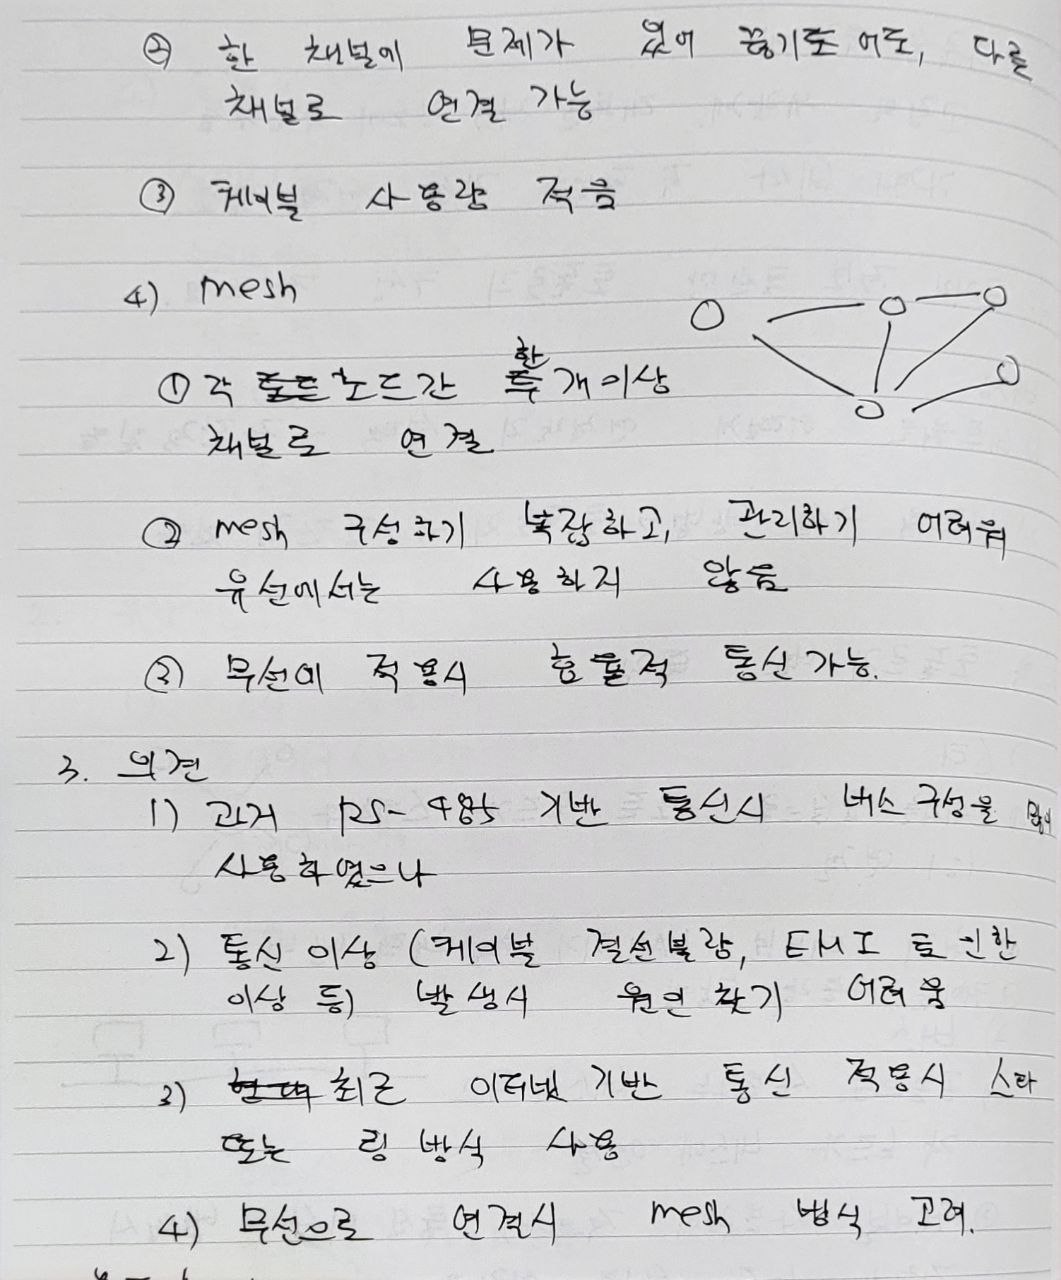 ② 한 채널에 문제가 있어 끊기도어도, 다른
채널로 연결 가능
③ 케이블 사용량 적음
4) mesh
① 각 노드간 한개이상
채널로 연결
② mesh 구성하기 복잡하고, 관리하기 어려워
유선에서는 사용하지 않음
③ 무선에 적용시 효율적 통신가능.
3. 의견
1) 과거 RS-485 기반 통신시 버스 구성을 많이
사용하였으나
2) 통신이상 (케이블 결선불량, EMI로 인한
이상 등) 발생시 원인찾기 어려움
3) 최근 이더넷 기반 통신 적용시 스타
또는 링 방식 사용
4) 무선으로 연결시 mesh 방식 고려.